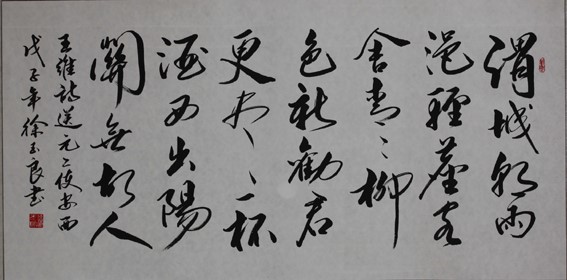 渭城朝雨
浥輕塵客
舍青々柳
色新勸君
更尽一杯
酒西出陽
關無故人
王維詩送元二使安西
戊子年徐玉良书